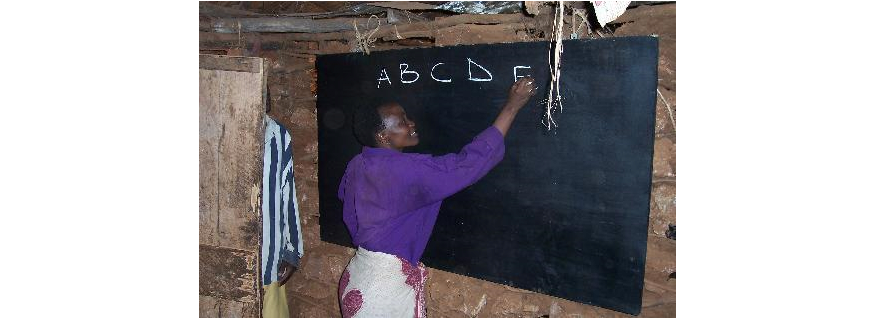 A B C D E